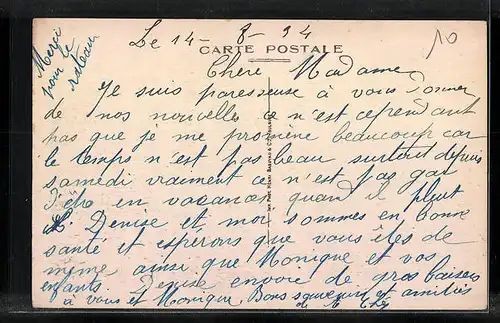 Merci
pour le
rateau
Le 14-8-34
10
CARTE POSTALE
Chere Madame
Je suis paresseuse à vous donner
de nos nouvelles ce n'est cependant
pas que je me promène beaucoup car
le temps n'est pas beau surtout depuis
samedi vraiment ce n'est pas gai
d'être en vacances quand il pleut
Denise et moi sommes en bonne
santé et espérons que vous êtes de
même ainsi que Monique et vos
enfants. Denise envoie de gros baisers
à vous et Monique. Bons souvenirs et amitiés
de